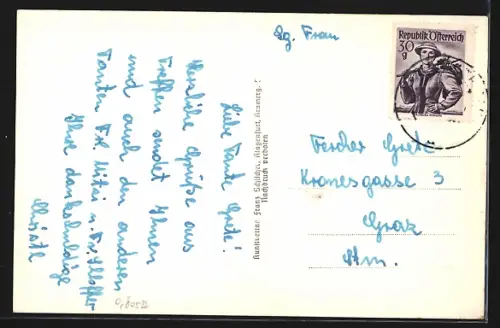 Liebe Tante Grete!
Herzliche Grüße aus
Treffen sendet Ihnen
und auch den anderen
Tanten Frl. Mitzi u. Fr.
Ihre dankschuldige
Christl
Kunstverlag Franz Schilcher, Klagenfurt,
Nachdruck verboten
Sg. Frau
Republik Österreich
30
g
Fercher Grete
Kronesgasse 3
Graz
Stm.